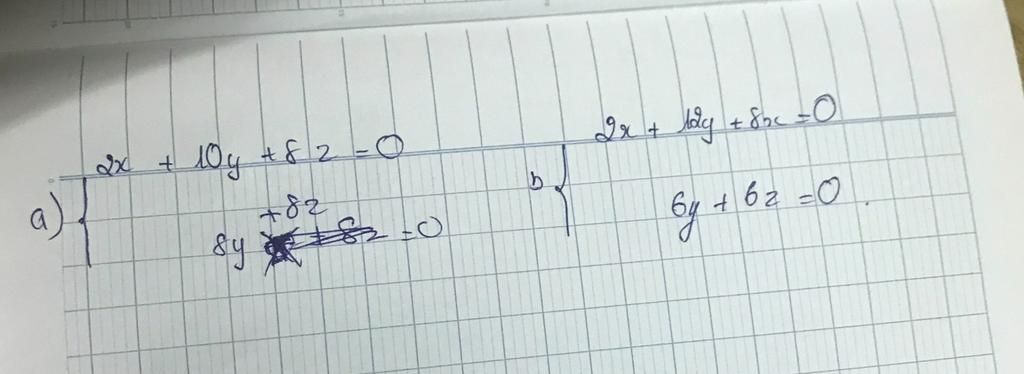 a) 2x + 10y + 8z = 0
8y + 8z = 0
b 2x + 12y + 8x = 0
6y + 6z = 0.